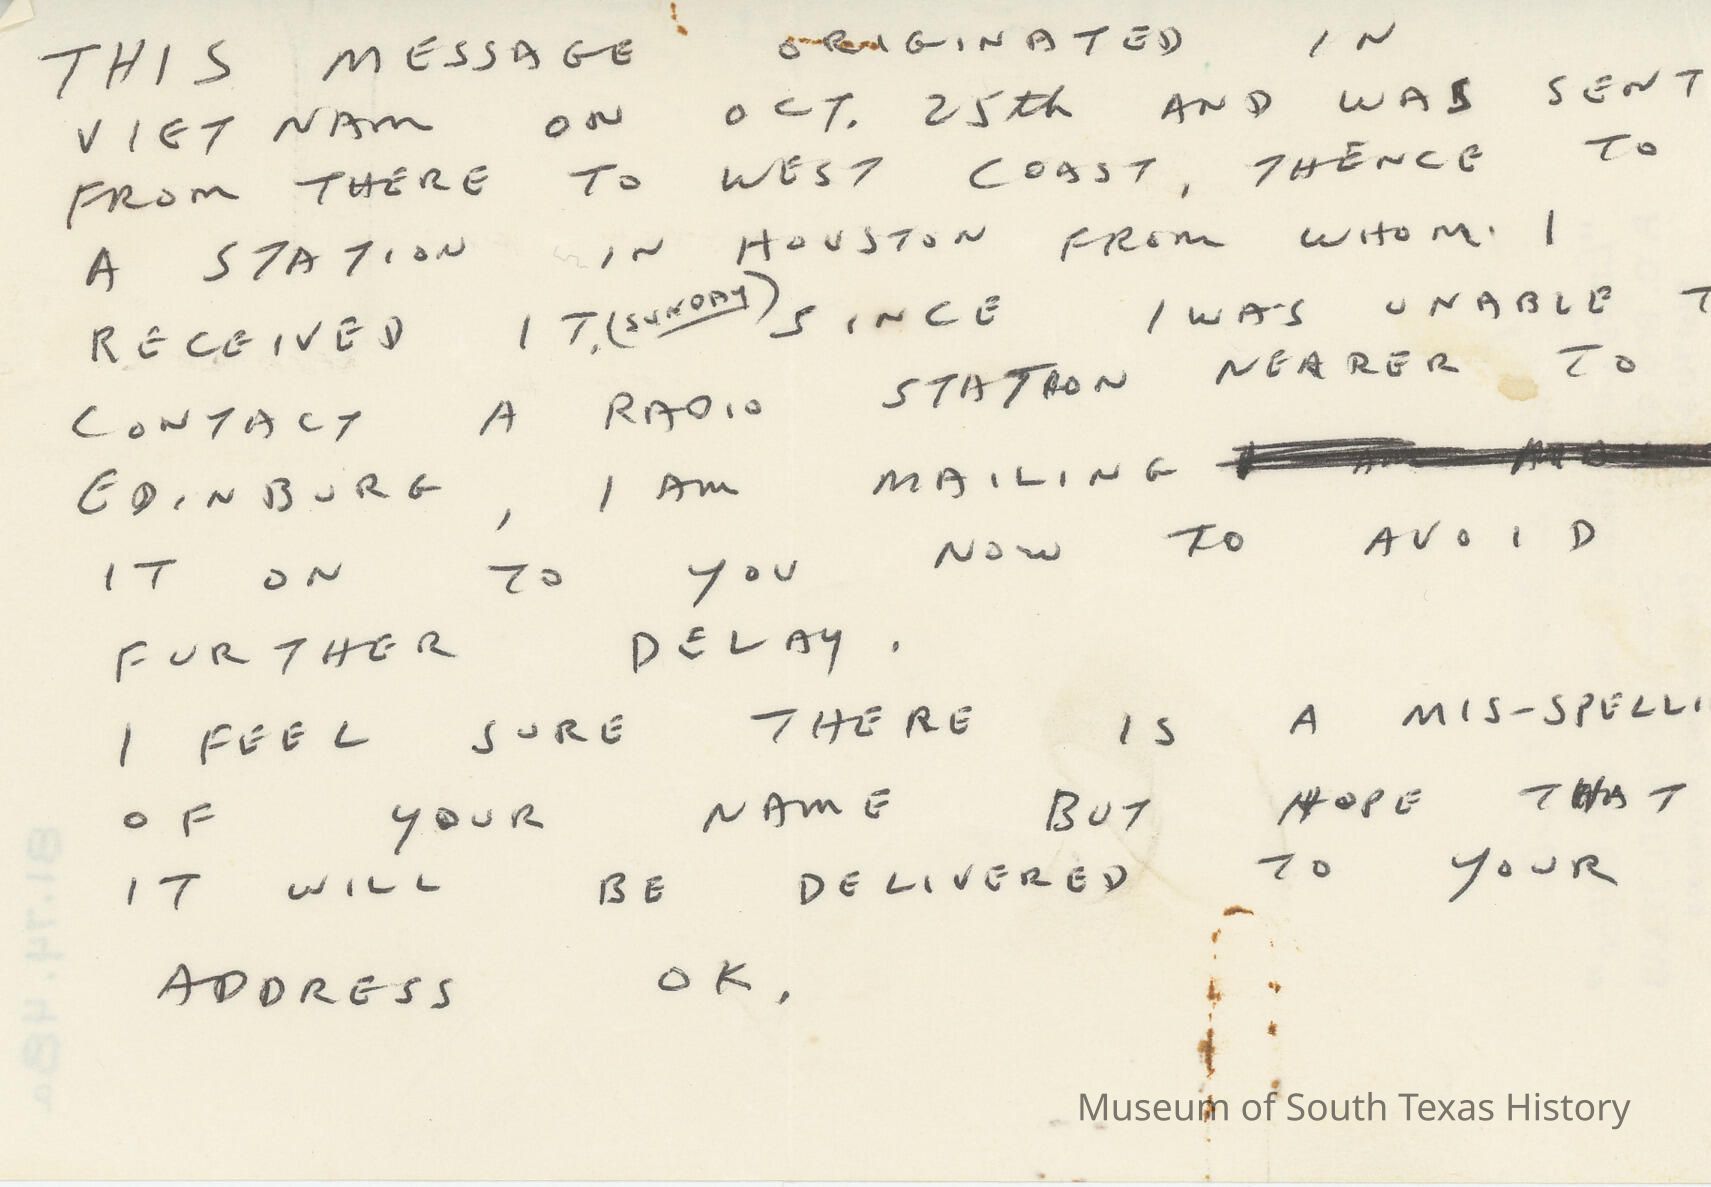 THIS MESSAGE ORIGINATED IN
VIET NAM ON OCT. 25th AND WAS SENT
FROM THERE TO WEST COAST, THENCE TO
A STATION IN HOUSTON FROM WHOM I
RECEIVED IT. (SUNDAY) SINCE I WAS UNABLE T
CONTACT A RADIO STATION NEARER TO
EDINBURG, I AM MAILING
IT ON TO YOU NOW TO AVOID
FURTHER DELAY.
I FEEL SURE THERE IS A MIS-SPELLI
OF YOUR NAME BUT HOPE THAT
IT WILL BE DELIVERED TO YOUR
ADDRESS OK.
81.74.48a
Museum of South Texas History